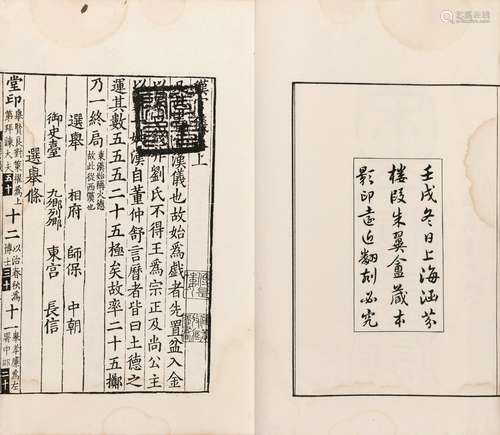 壬戌冬日上海涵芬
樓叚朱翼盦藏本
影印遠近翻刻必究
漢 上
漢儀也故始為戲者先置盆入金
以 非劉氏不得王為宗正及尚公主
漢自董仲舒言曆者皆曰土德之
運其數五五五二十五極矣故率二十五擲
乃一終局 東漢始稱火德故此從西漢也
選舉 相府 師保 中朝
御史臺 九卿列卿 東宮 長信
選舉條
堂印 舉賢良對策擢為上第拜諫大夫 五十 十二 以治春秋為博士 三十 十一 舉孝廉為左署中郎 二十